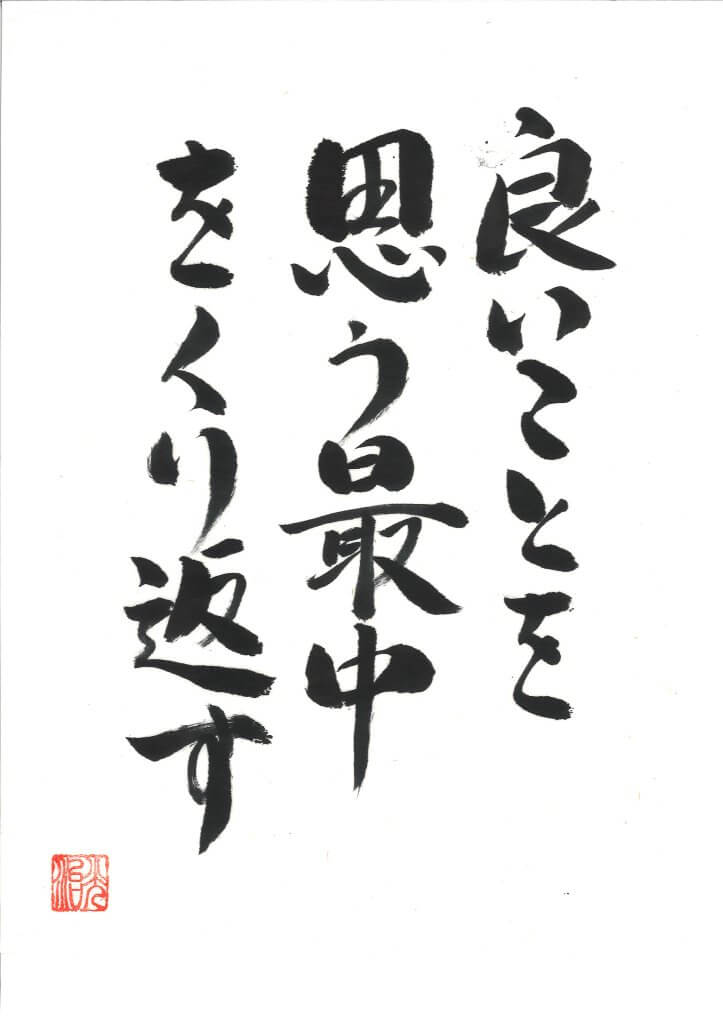 良いことを
思う最中
をくり返す